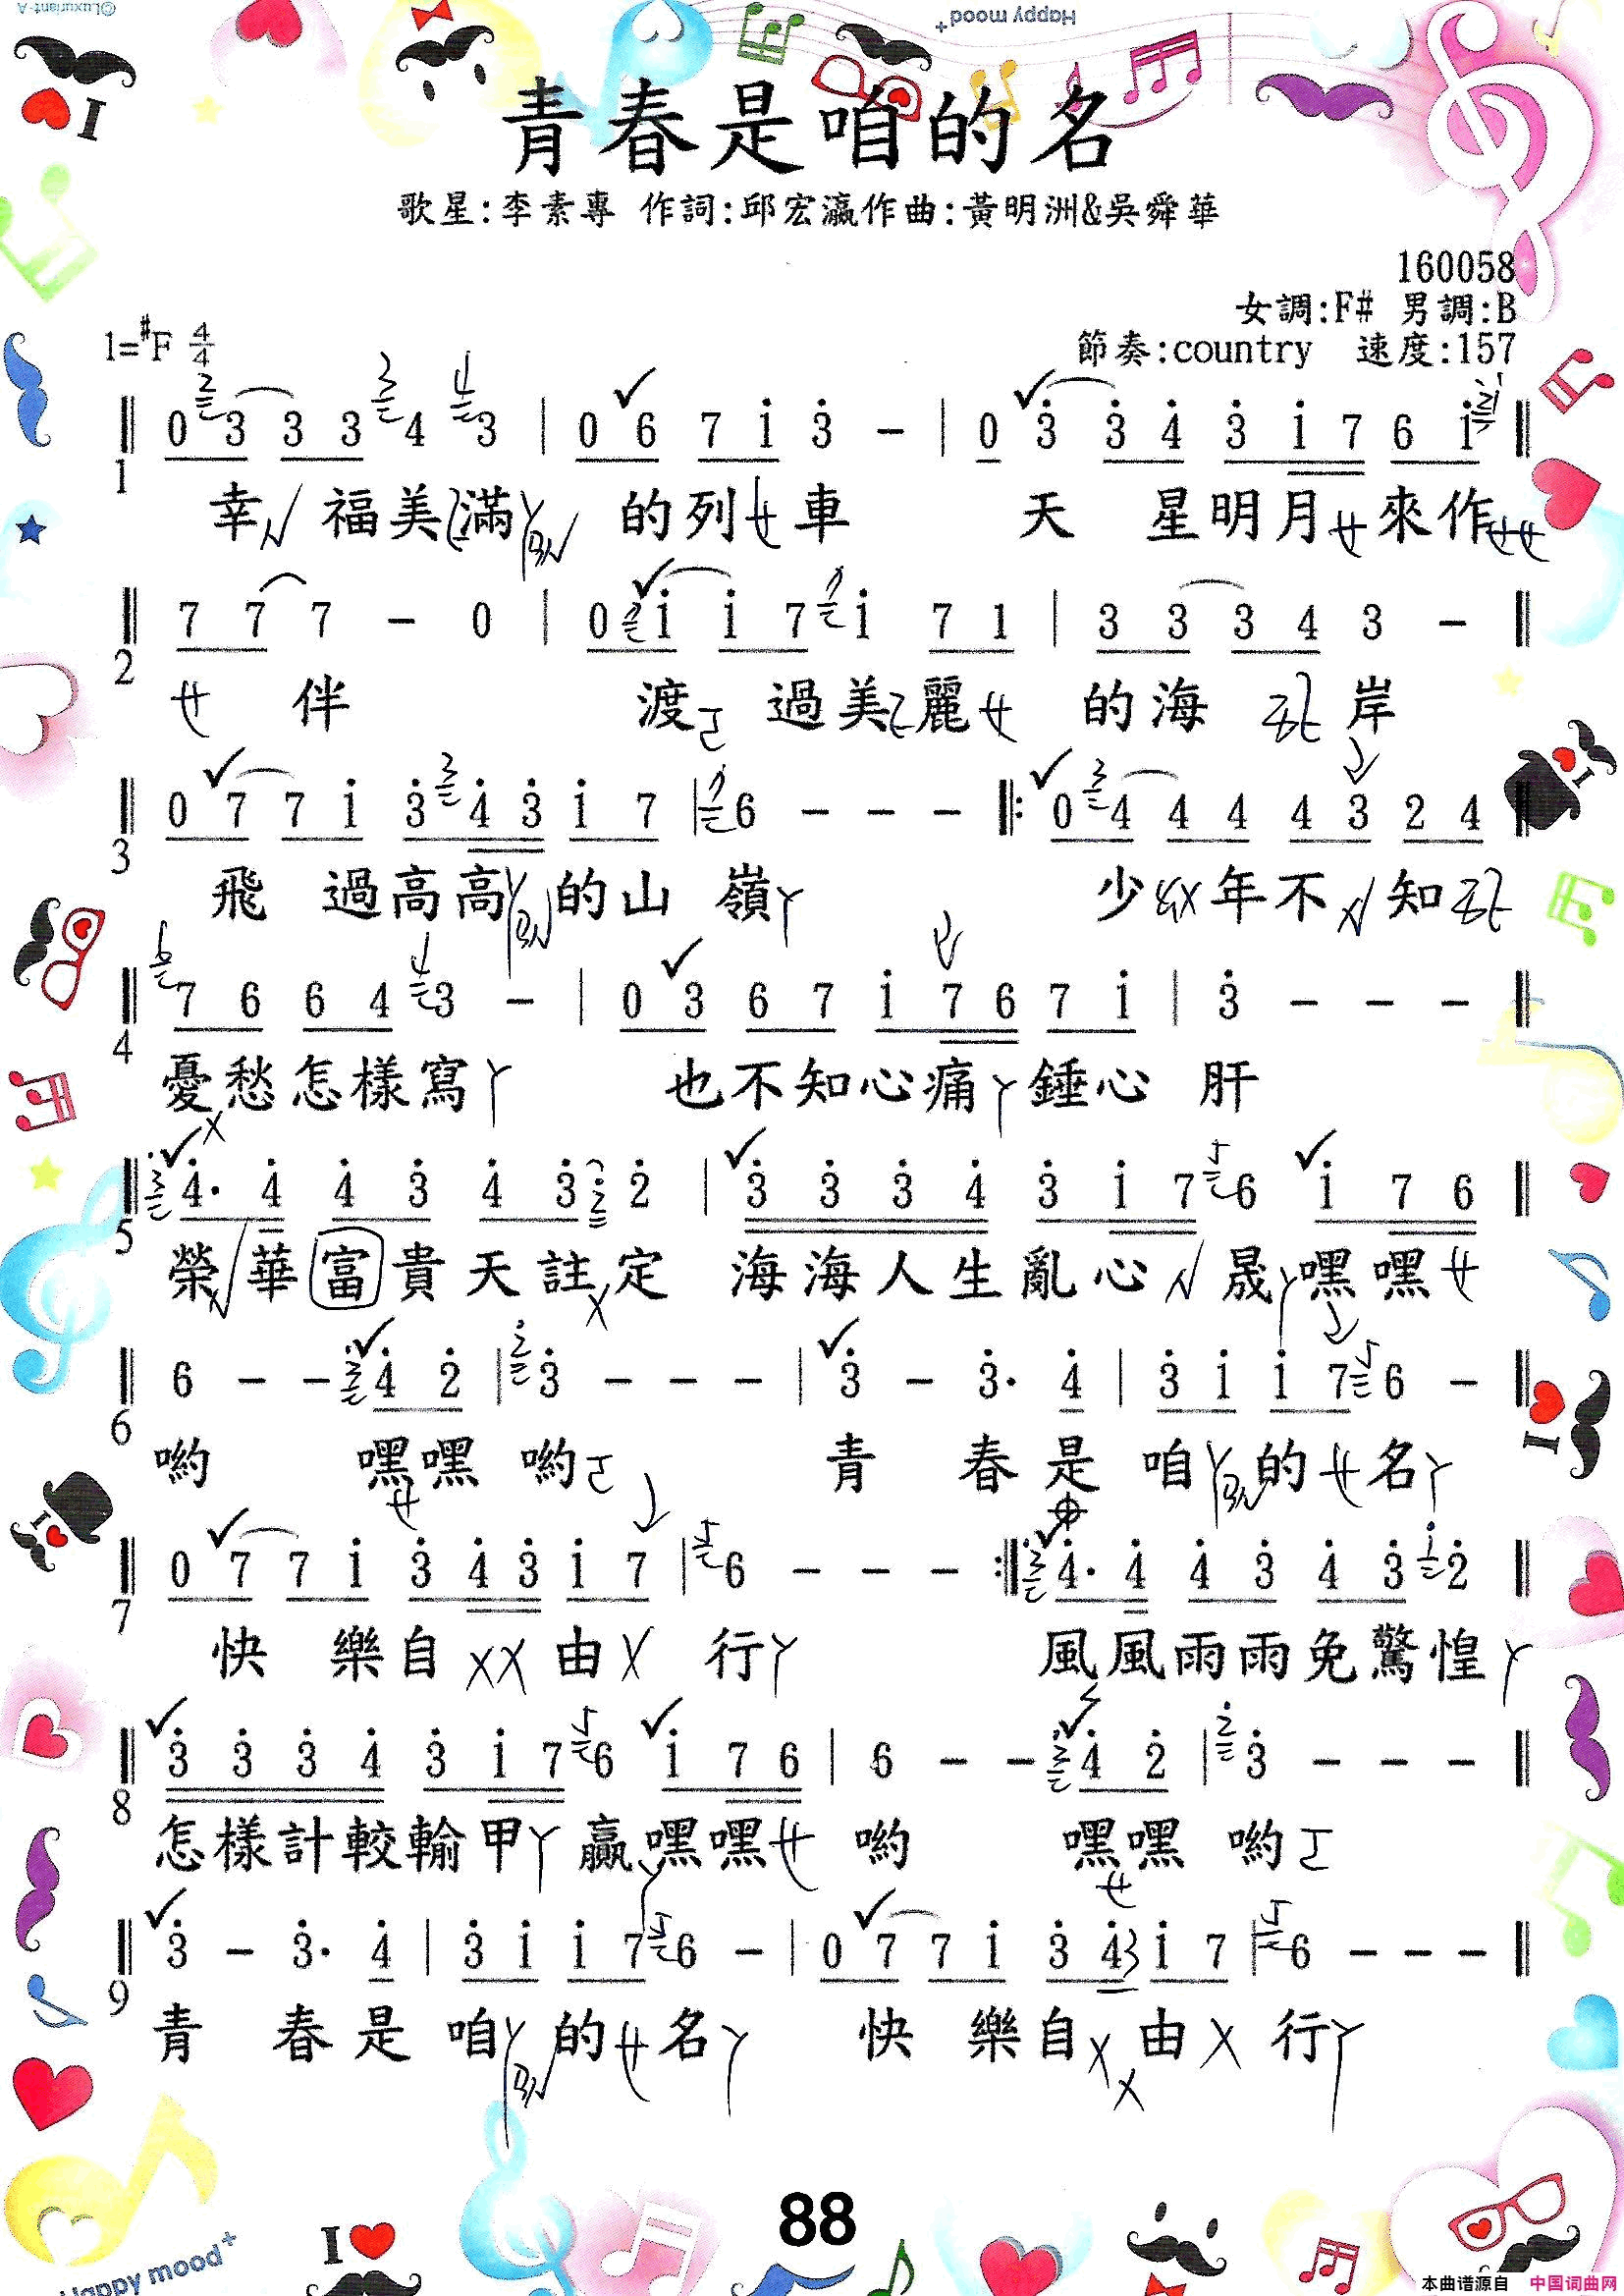 ©Luxuriant-A
Happy mood+
I
青春是咱的名
歌星:李素專 作詞:邱宏瀛作曲:黃明洲&吳舜華
160058
女調:F# 男調:B
1=#F 4/4
節奏:country 速度:157
1 0 3 3 3 4 3 | 0 6 7 i 3 - | 0 3 3 4 3 i 7 6 i
幸 福美滿 的列車 天 星明月 來作
2 7 7 7 - 0 | 0 i i 7 i 7 1 | 3 3 3 4 3 -
伴 渡 過美麗 的海 岸
3 0 7 7 i 3 4 3 i 7 | 6 - - - ‖: 0 4 4 4 4 3 2 4
飛 過高高 的山 嶺 少 年不 知
I
4 7 6 6 4 3 - | 0 3 6 7 i 7 6 7 i | 3 - - -
憂愁怎樣寫 也不知心痛 錘心 肝
5 4· 4 4 3 4 3 2 | 3 3 3 4 3 i 7 6 i 7 6
榮 華富貴天註 定 海海人生亂心 晟 嘿嘿
6 6 - - 4 2 | 3 - - - | 3 - 3· 4 | 3 i i 7 6 -
喲 嘿嘿 喲 青 春是 咱 的 名
I
I
7 0 7 7 i 3 4 3 i 7 | 6 - - - :‖ 4· 4 4 3 4 3 2
快 樂自 由 行 風風雨雨免驚惶
8 3 3 3 4 3 i 7 6 i 7 6 | 6 - - 4 2 | 3 - - -
怎樣計較輸甲 贏嘿嘿 喲 嘿嘿 喲
9 3 - 3· 4 | 3 i i 7 6 - | 0 7 7 i 3 4 3 i 7 | 6 - - -
青 春是 咱 的 名 快 樂自 由 行
88
I
Happy mood+
本曲谱源自 中国词曲网